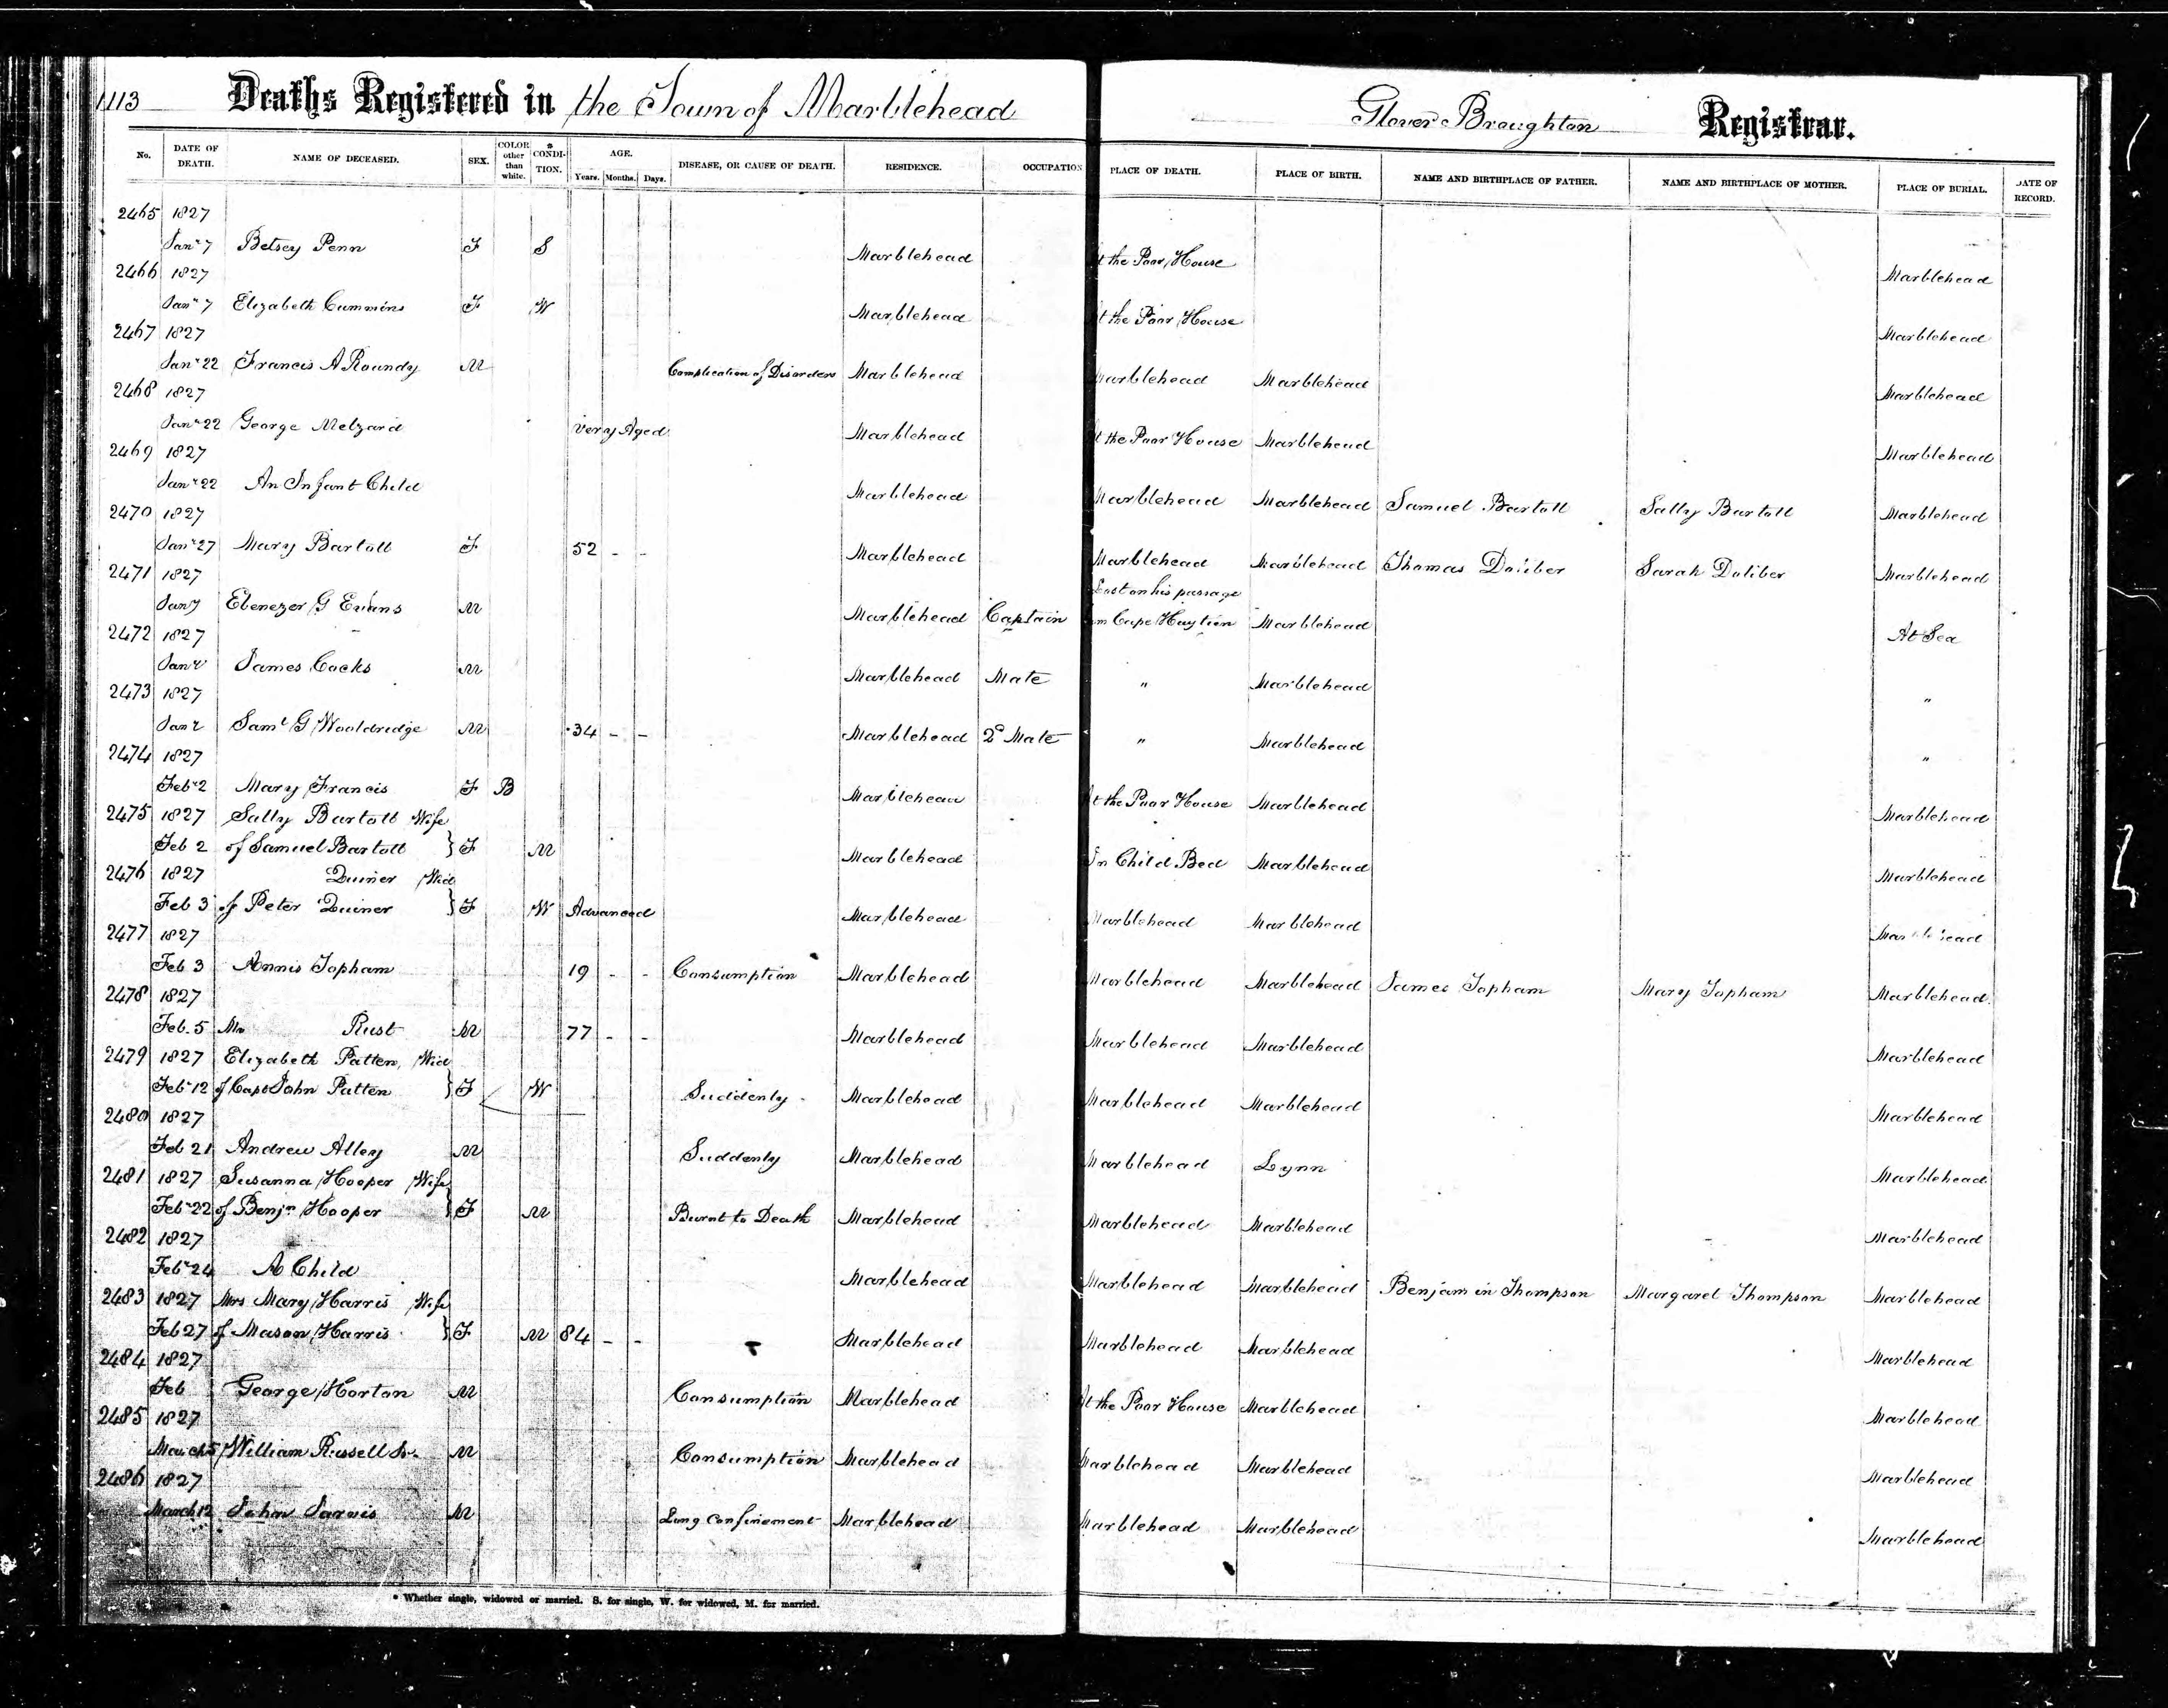 113 Deaths Registered in the Town of Marblehead Glover Broughton Registrar.
No. DATE OF DEATH. NAME OF DECEASED. SEX. COLOR other than white. * CONDITION. AGE. Years. Months. Days. DISEASE, OR CAUSE OF DEATH. RESIDENCE. OCCUPATION PLACE OF DEATH. PLACE OF BIRTH. NAME AND BIRTHPLACE OF FATHER. NAME AND BIRTHPLACE OF MOTHER. PLACE OF BURIAL. DATE OF RECORD.
2465 1827
Janr 7 Betsey Penn F S Marblehead At the Poor House Marblehead
2466 1827
Janr 7 Elizabeth Cummins F W Marblehead At the Poor House Marblehead
2467 1827
Janr 22 Francis A Roundy M Complication of Disorders Marblehead Marblehead Marblehead Marblehead
2468 1827
Janr 22 George Melzard very Aged Marblehead At the Poor House Marblehead Marblehead
2469 1827
Janr 22 An Infant Child Marblehead Marblehead Marblehead Samuel Bartoll Sally Bartoll Marblehead
2470 1827
Janr 27 Mary Bartoll F 52 - - Marblehead Marblehead Marblehead Thomas Doliber Sarah Doliber Marblehead
2471 1827 Lost on his passage
Jany Ebenezer G Evans M Marblehead Captain Cape Haytien Marblehead At Sea
2472 1827
Janr James Cocks M Marblehead Mate " Marblehead "
2473 1827
Janr Saml G Wooldredge M 34 - - Marblehead 2d Mate " Marblehead "
2474 1827
Febr 2 Mary Francis F B Marblehead At the Poor House Marblehead Marblehead
2475 1827 Sally Bartoll Wife
Feb 2 of Samuel Bartoll } F M Marblehead In Child Bed Marblehead Marblehead
2476 1827 Quiner Wid
Feb 3 of Peter Quiner } F W Advanced Marblehead Marblehead Marblehead Marblehead
2477 1827
Feb 3 Annis Topham 19 - - Consumption Marblehead Marblehead Marblehead James Topham Mary Topham Marblehead
2478 1827
Feb. 5 Mr Rust M 77 - - Marblehead Marblehead Marblehead Marblehead
2479 1827 Elizabeth Patten, Wid
Febr 12 of Capt John Patten } F W Suddenly Marblehead Marblehead Marblehead Marblehead
2480 1827
Feb 21 Andrew Alley M Suddenly Marblehead Marblehead Lynn Marblehead
2481 1827 Susanna Hooper Wife
Febr 22 of Benjn Hooper } F M Burnt to Death Marblehead Marblehead Marblehead Marblehead
2482 1827
Febr 24 A Child Marblehead Marblehead Marblehead Benjamin Thompson Margaret Thompson Marblehead
2483 1827 Mrs Mary Harris Wife
Feb 27 of Mason Harris } F M 84 - - Marblehead Marblehead Marblehead Marblehead
2484 1827
Feb George Horton M Consumption Marblehead At the Poor House Marblehead Marblehead
2485 1827
March 5 William Russell M Consumption Marblehead Marblehead Marblehead Marblehead
2486 1827
March 12 John Jarvis M Long Confinement Marblehead Marblehead Marblehead Marblehead
* Whether single, widowed or married. S. for single, W. for widowed, M. for married.